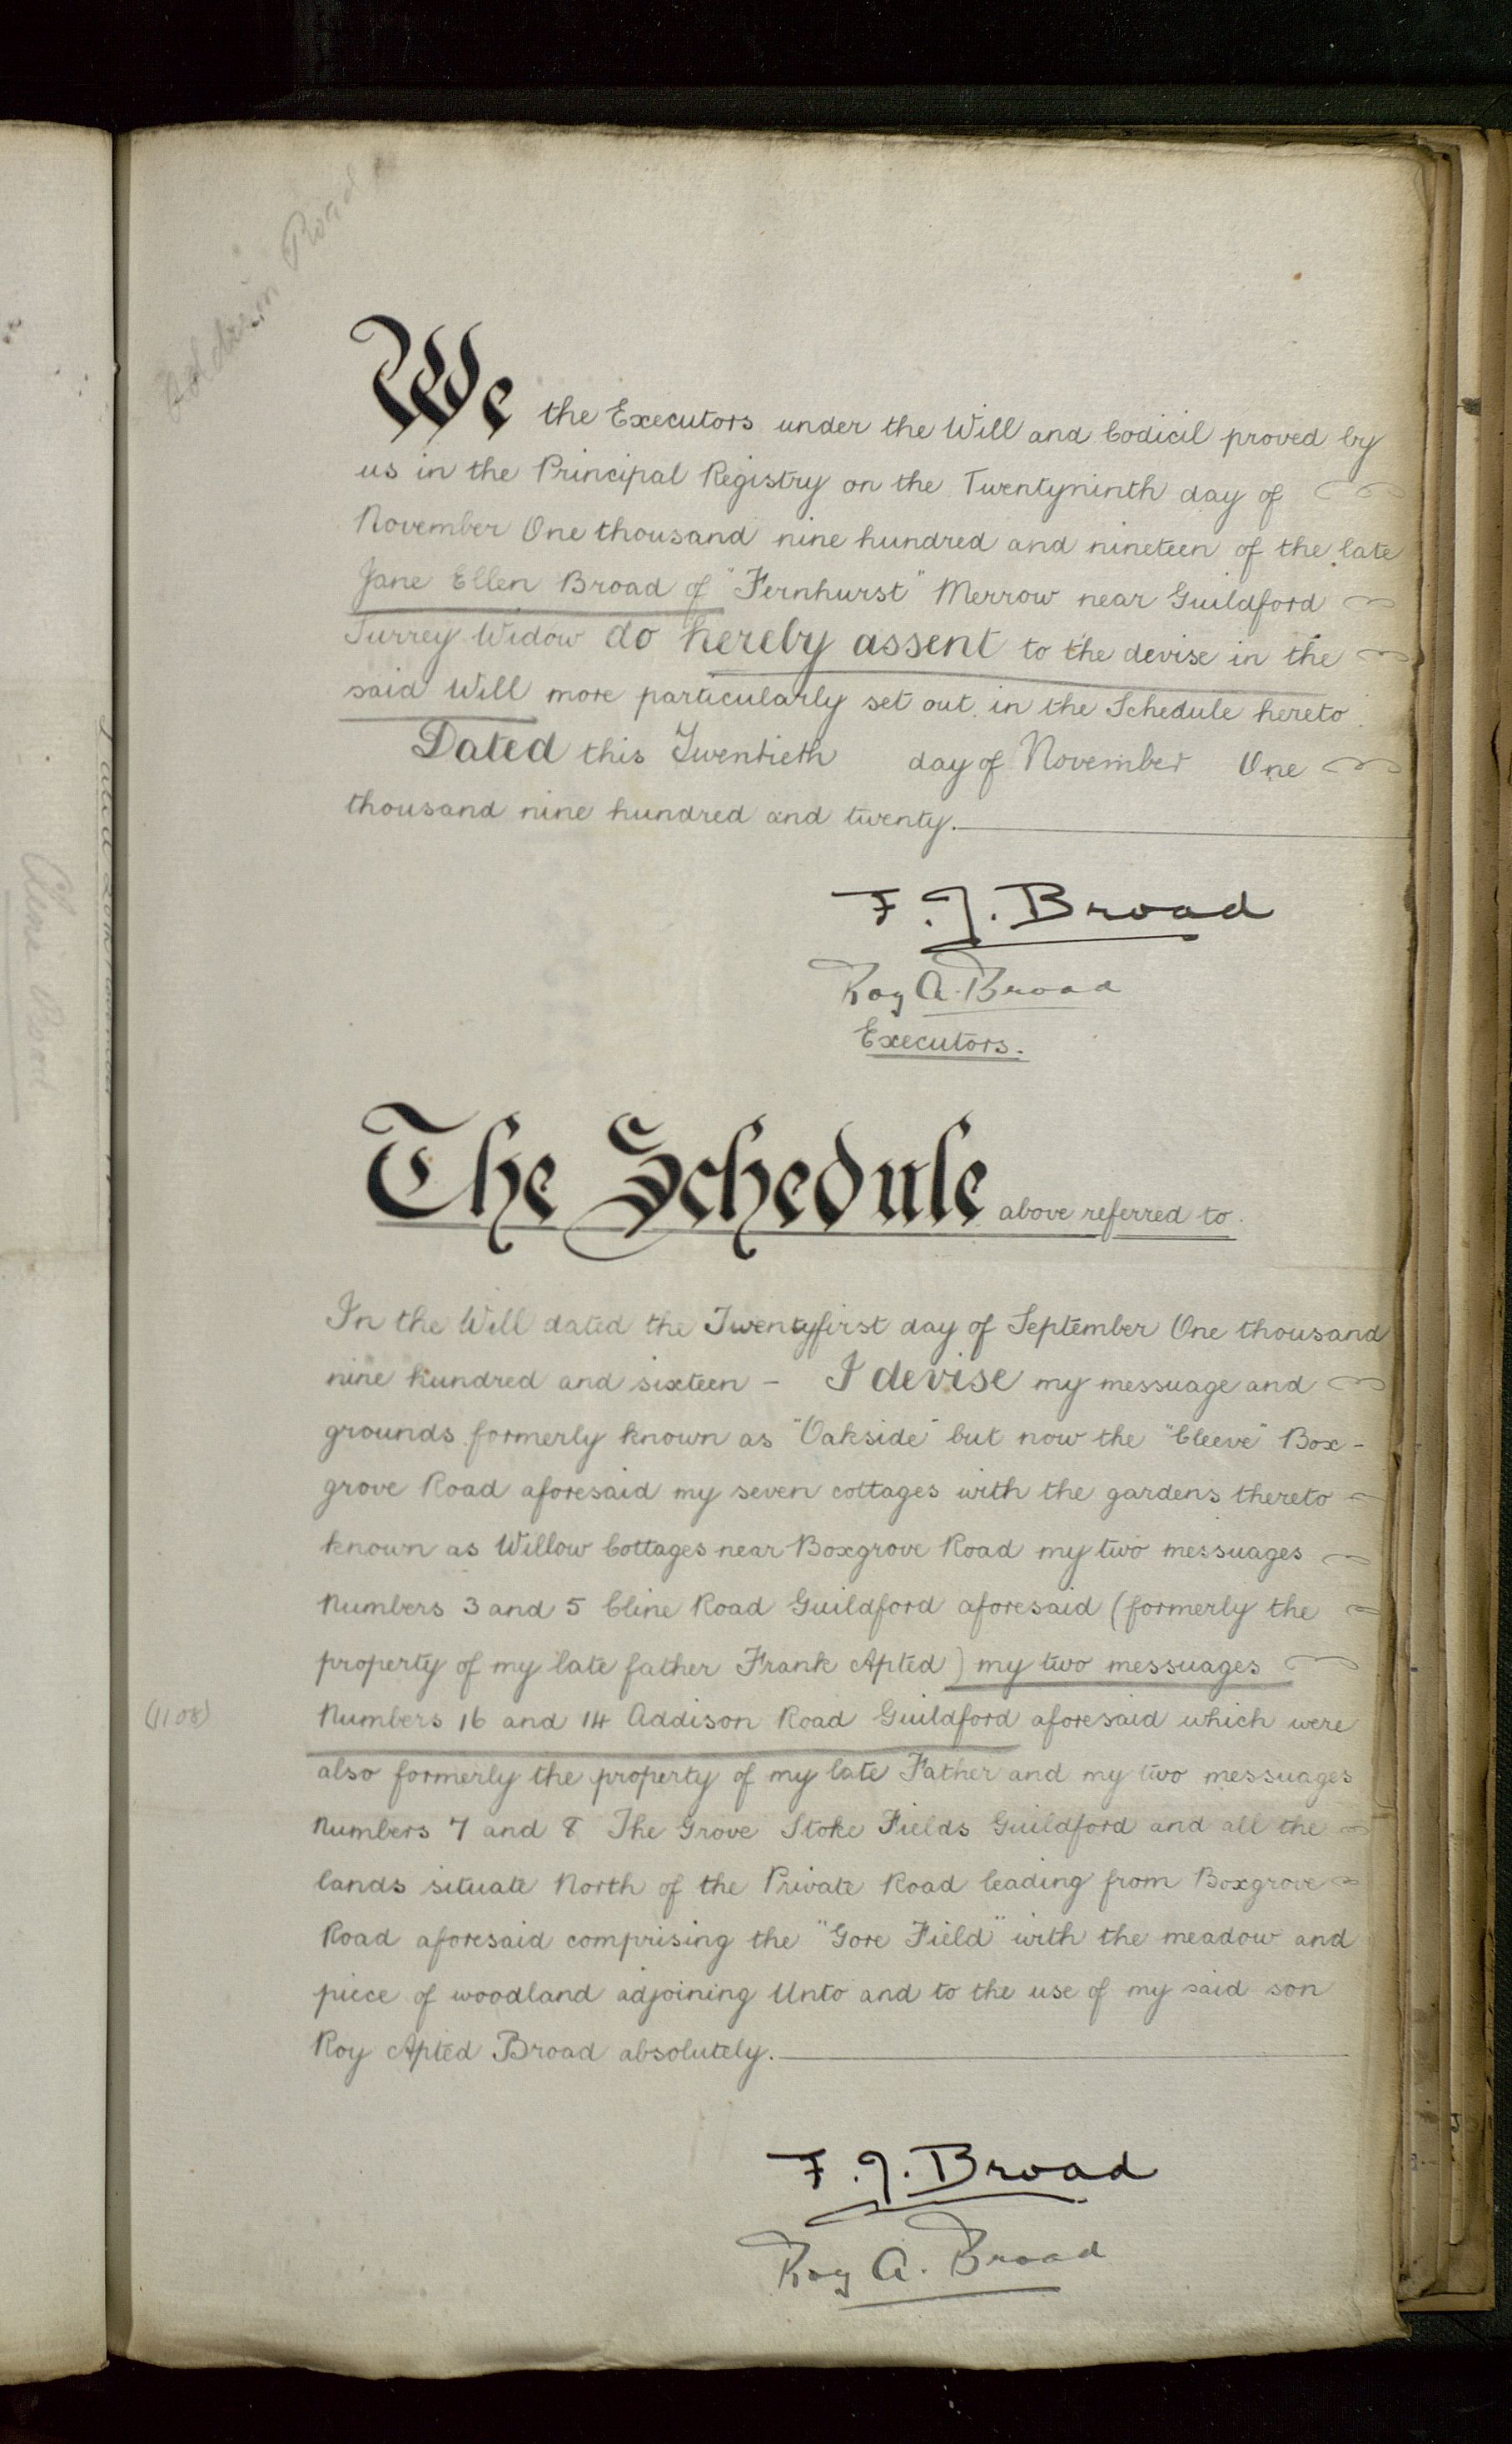 Addison Road
We the Executors under the Will and Codicil proved by
us in the Principal Registry on the Twentyninth day of
November One thousand nine hundred and nineteen of the late
Jane Ellen Broad of "Fernhurst" Merrow near Guildford
Surrey Widow do hereby assent to the devise in the
said Will more particularly set out in the Schedule hereto.
Dated this Twentieth day of November One
thousand nine hundred and twenty.
F. J. Broad
Roy A. Broad
Executors.
The Schedule above referred to.
In the Will dated the Twentyfirst day of September One thousand
nine hundred and sixteen - I devise my messuage and
grounds formerly known as "Oakside" but now the "Cleeve" Box-
grove Road aforesaid my seven cottages with the gardens thereto
known as Willow Cottages near Boxgrove Road my two messuages
Numbers 3 and 5 Cline Road Guildford aforesaid (formerly the
property of my late father Frank Apted) my two messuages
(1108)
Numbers 16 and 14 Addison Road Guildford aforesaid which were
also formerly the property of my late Father and my two messuages
Numbers 7 and 8 The Grove Stoke Fields Guildford and all the
lands situate North of the Private Road leading from Boxgrove
Road aforesaid comprising the "Gore Field" with the meadow and
piece of woodland adjoining Unto and to the use of my said son
Roy Apted Broad absolutely.
F. J. Broad
Roy A. Broad